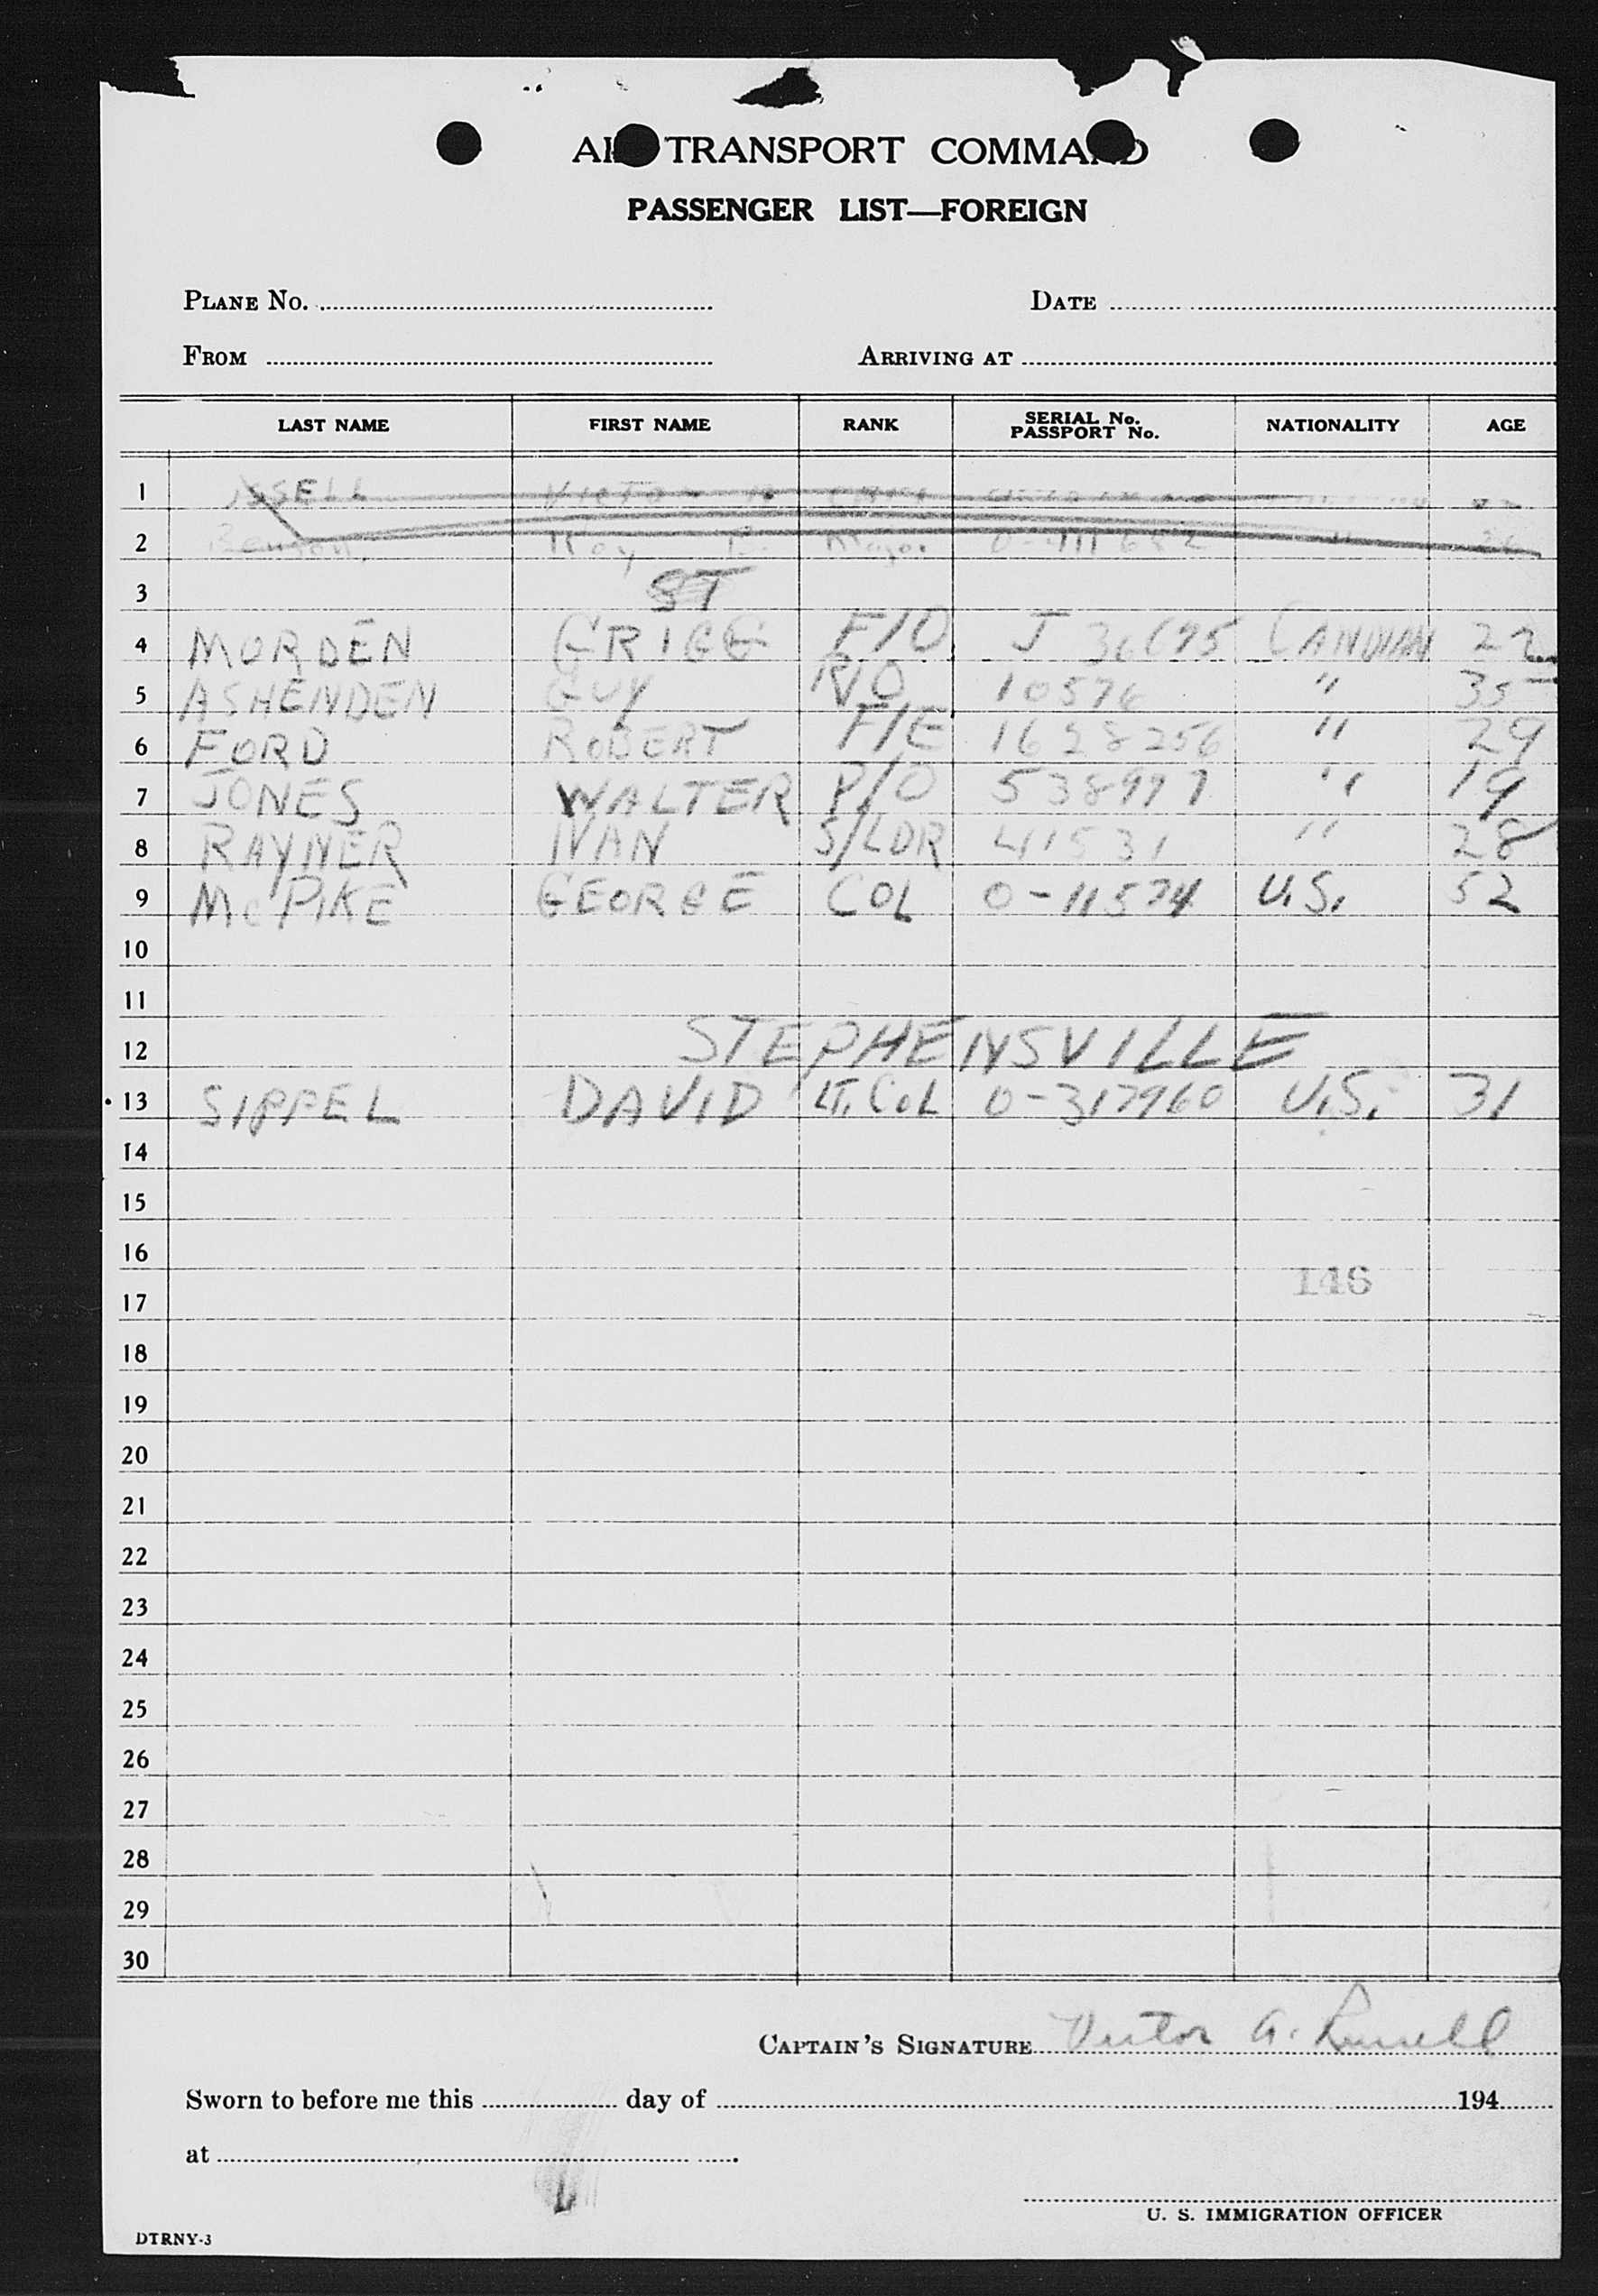 AIR TRANSPORT COMMAND
PASSENGER LIST—FOREIGN
PLANE No.
DATE
FROM
ARRIVING AT
LAST NAME FIRST NAME RANK SERIAL No. PASSPORT No. NATIONALITY AGE
1
2 Roy Major
3 ST
4 MORDEN F/O CANDIAN 22
5 ASHENDEN GUY R/O 10576 " 35
6 FORD ROBERT F/E 1628256 " 29
7 JONES WALTER P/O " 19
8 RAYNER IVAN S/LDR 41531 " 28
9 McPIKE GEORGE COL O-11574 U.S. 52
10
11
12 STEPHENSVILLE
13 SIPPEL DAVID LT. COL O-317960 U.S. 31
14
15
16
146
17
18
19
20
21
22
23
24
25
26
27
28
29
30
CAPTAIN'S SIGNATURE Victor A. Russell
Sworn to before me this day of 194
at
U. S. IMMIGRATION OFFICER
DTRNY-3